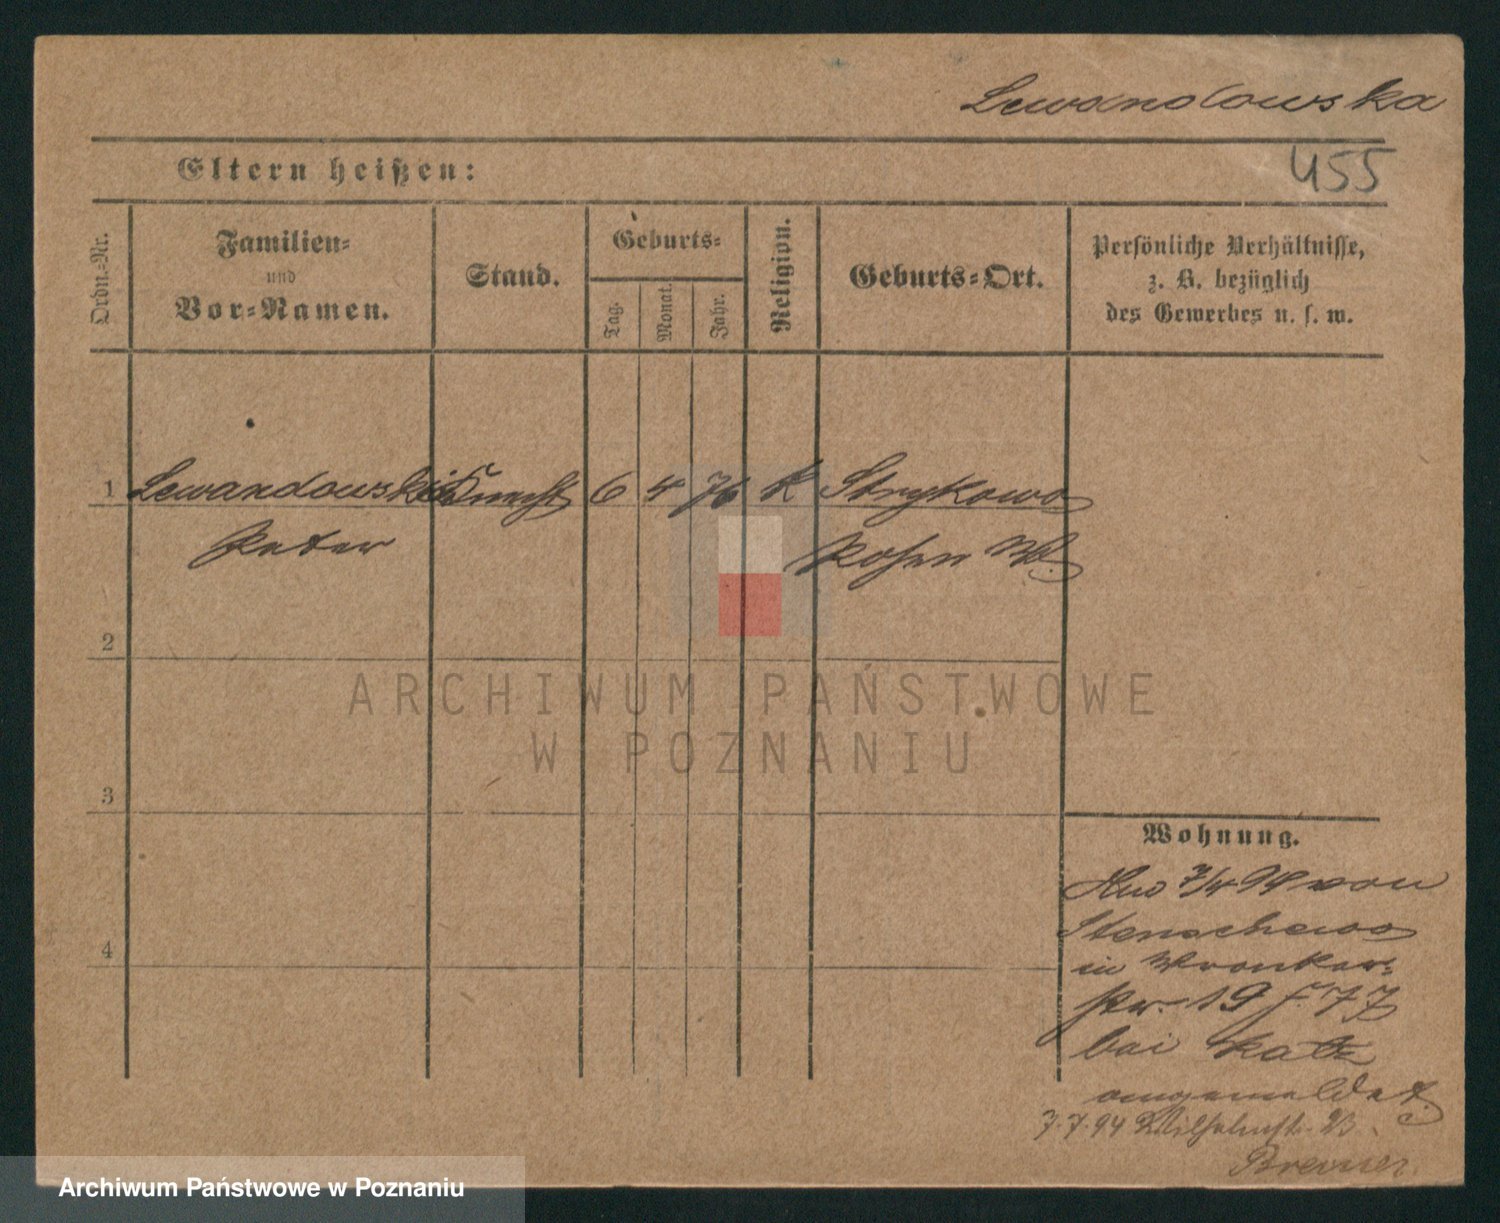 Lewandowska
455
Eltern heißen:
Ordn.-Nr.
Familien-
und
Vor-Namen.
Stand.
Geburts-
Tag.
Monat.
Jahr.
Religion.
Geburts-Ort.
Persönliche Verhältnisse,
z. B. bezüglich
des Gewerbes u. s. w.
1 Lewandowski Knecht 6 4 76 K Strykowo
Peter Posen W.
2
ARCHIWUM PAŃSTWOWE
W POZNANIU
3
Wohnung.
7/4 94 von
Stenschewo
in Wronker-
str. 19 7
bei Katz
angemeldet
4
7.7.94 Wilhelmstr.
Archiwum Państwowe w Poznaniu